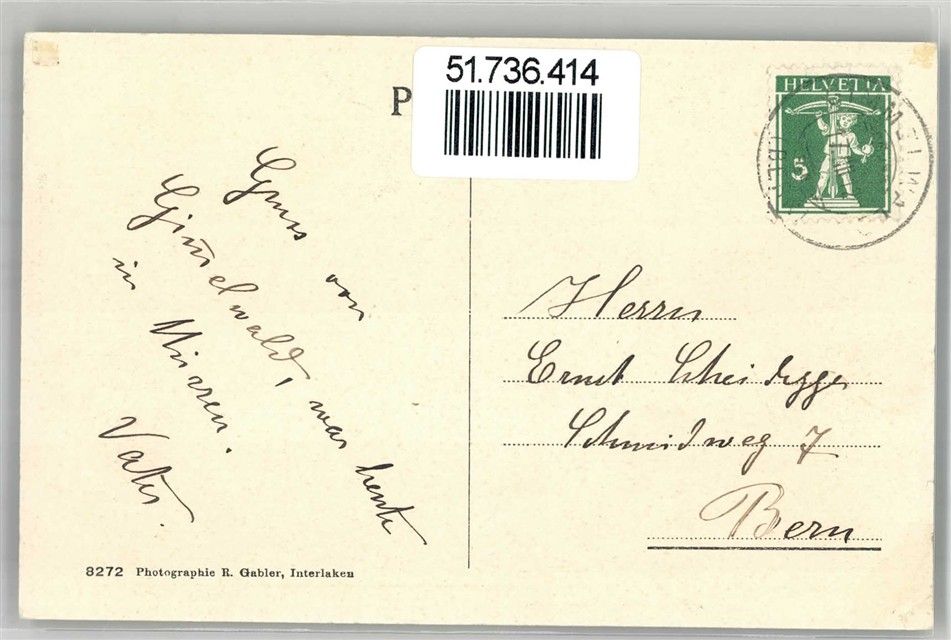 51.736.414
P
HELVETIA
5
Gruss von
Gimelwald, war heute
in Mürren.
Vater.
Herrn
Ernst Scheidegger
Schmidweg 7
Bern
8272 Photographie R. Gabler, Interlaken